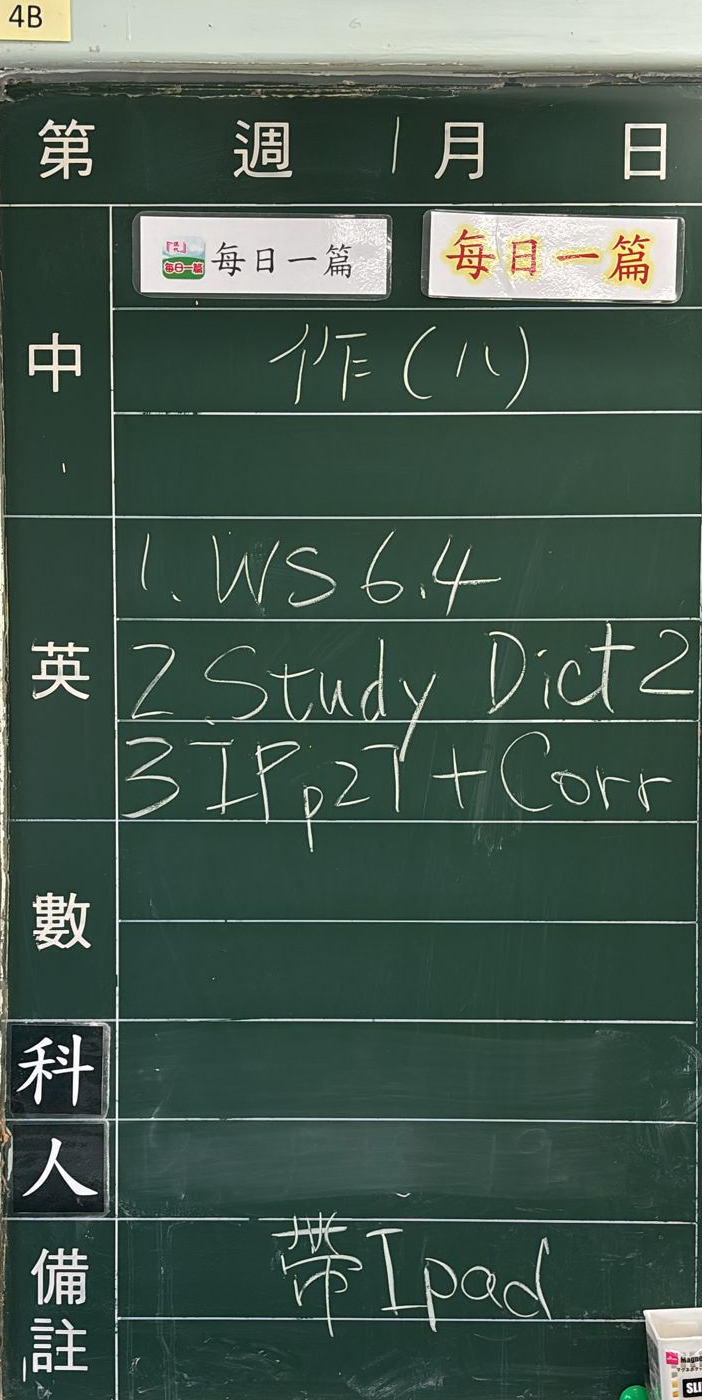 4B
第 週 1月 日
每日一篇 每日一篇 每日一篇
中
作(八)
英
1. WS 6.4
2 Study Dict 2
3 IP p27 + Corr
數
科
人
備註
帶 Ipad